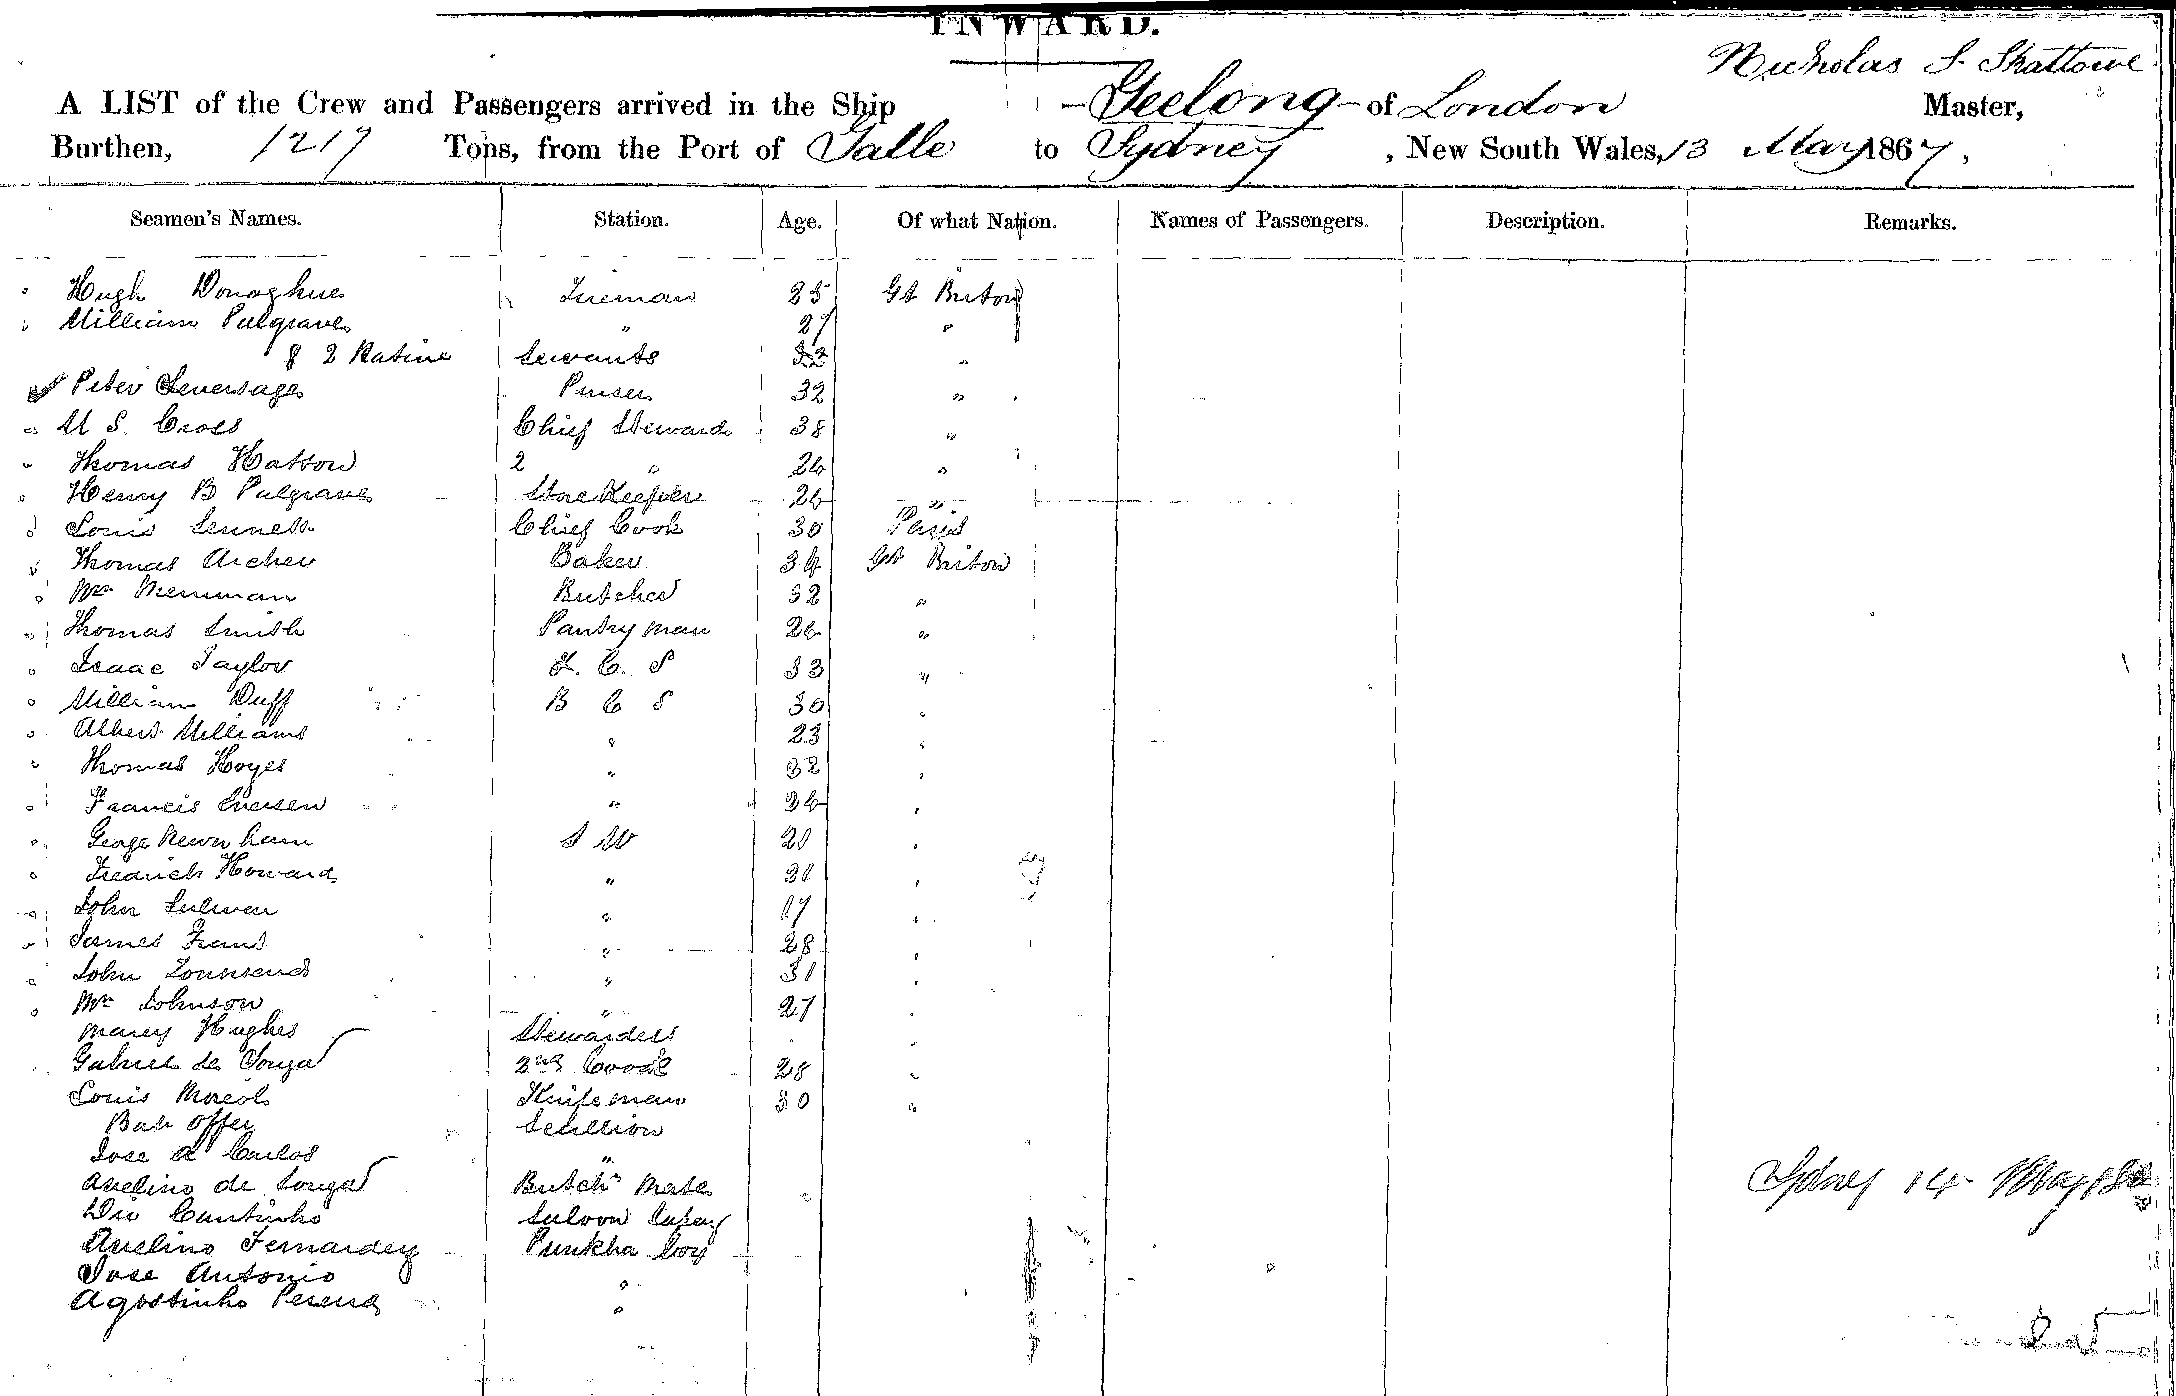 INWARD.
Nicholas S. Skottowe
A LIST of the Crew and Passengers arrived in the Ship Geelong of London Master,
Burthen, 1217 Tons, from the Port of Galle to Sydney, New South Wales, 13 May 1867,
Seamen's Names. Station. Age. Of what Nation. Names of Passengers. Description. Remarks.
Hugh Donaghue Fireman 25 Gt Briton
William Pulgrave " 27 "
& 2 Native Servants 32 "
Peter Seversage Purser 32 "
W S. Cross Chief Steward 38 "
Thomas Hatton 2 " 26 "
Henry B Pulgrave Store Keeper 26 "
Louis Chief Cook 30 Paris
Thomas Archer Baker 34 Gt Briton
Wm Merriman Butcher 32 "
Thomas Smith Pantry man 26 "
Isaac Taylor F. C. S 33 "
William Duff B C S 30 "
Albert Williams " 23 "
Thomas Hoyes " 32 "
Francis " 26 "
George Newnham S W 20 "
Fredrick Howard " 30 "
John " 17 "
James " 28 "
John Townsend " 31 "
Wm Johnson " 27 "
Marey Hughes Stewardess "
Gabriel de Souza 2nd Cook 28 "
Louis Knifeman 30 "
Scullion
Jose Carlos "
Avelino de Souza Butchr Mate
Coutinho Saloon
Avelino Fernandez Punkha boy
Jose Antonio "
Agostinho Pereira "
Sydney 14 May